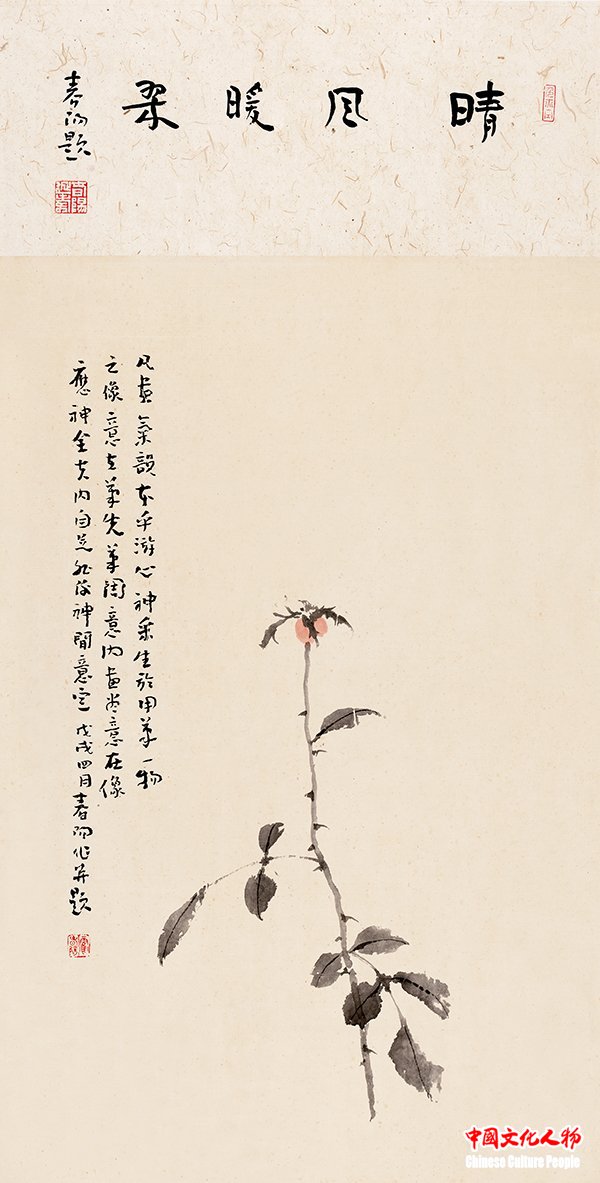 晴风暖
春阳题
凡畫氣韻本乎游心神采生於用筆一物
之像意立筆先筆周意內畫尽意在像
應神全夫內自足然後神閒意定 戊戌四月春阳作并題
中国文化人物
Chinese Culture People